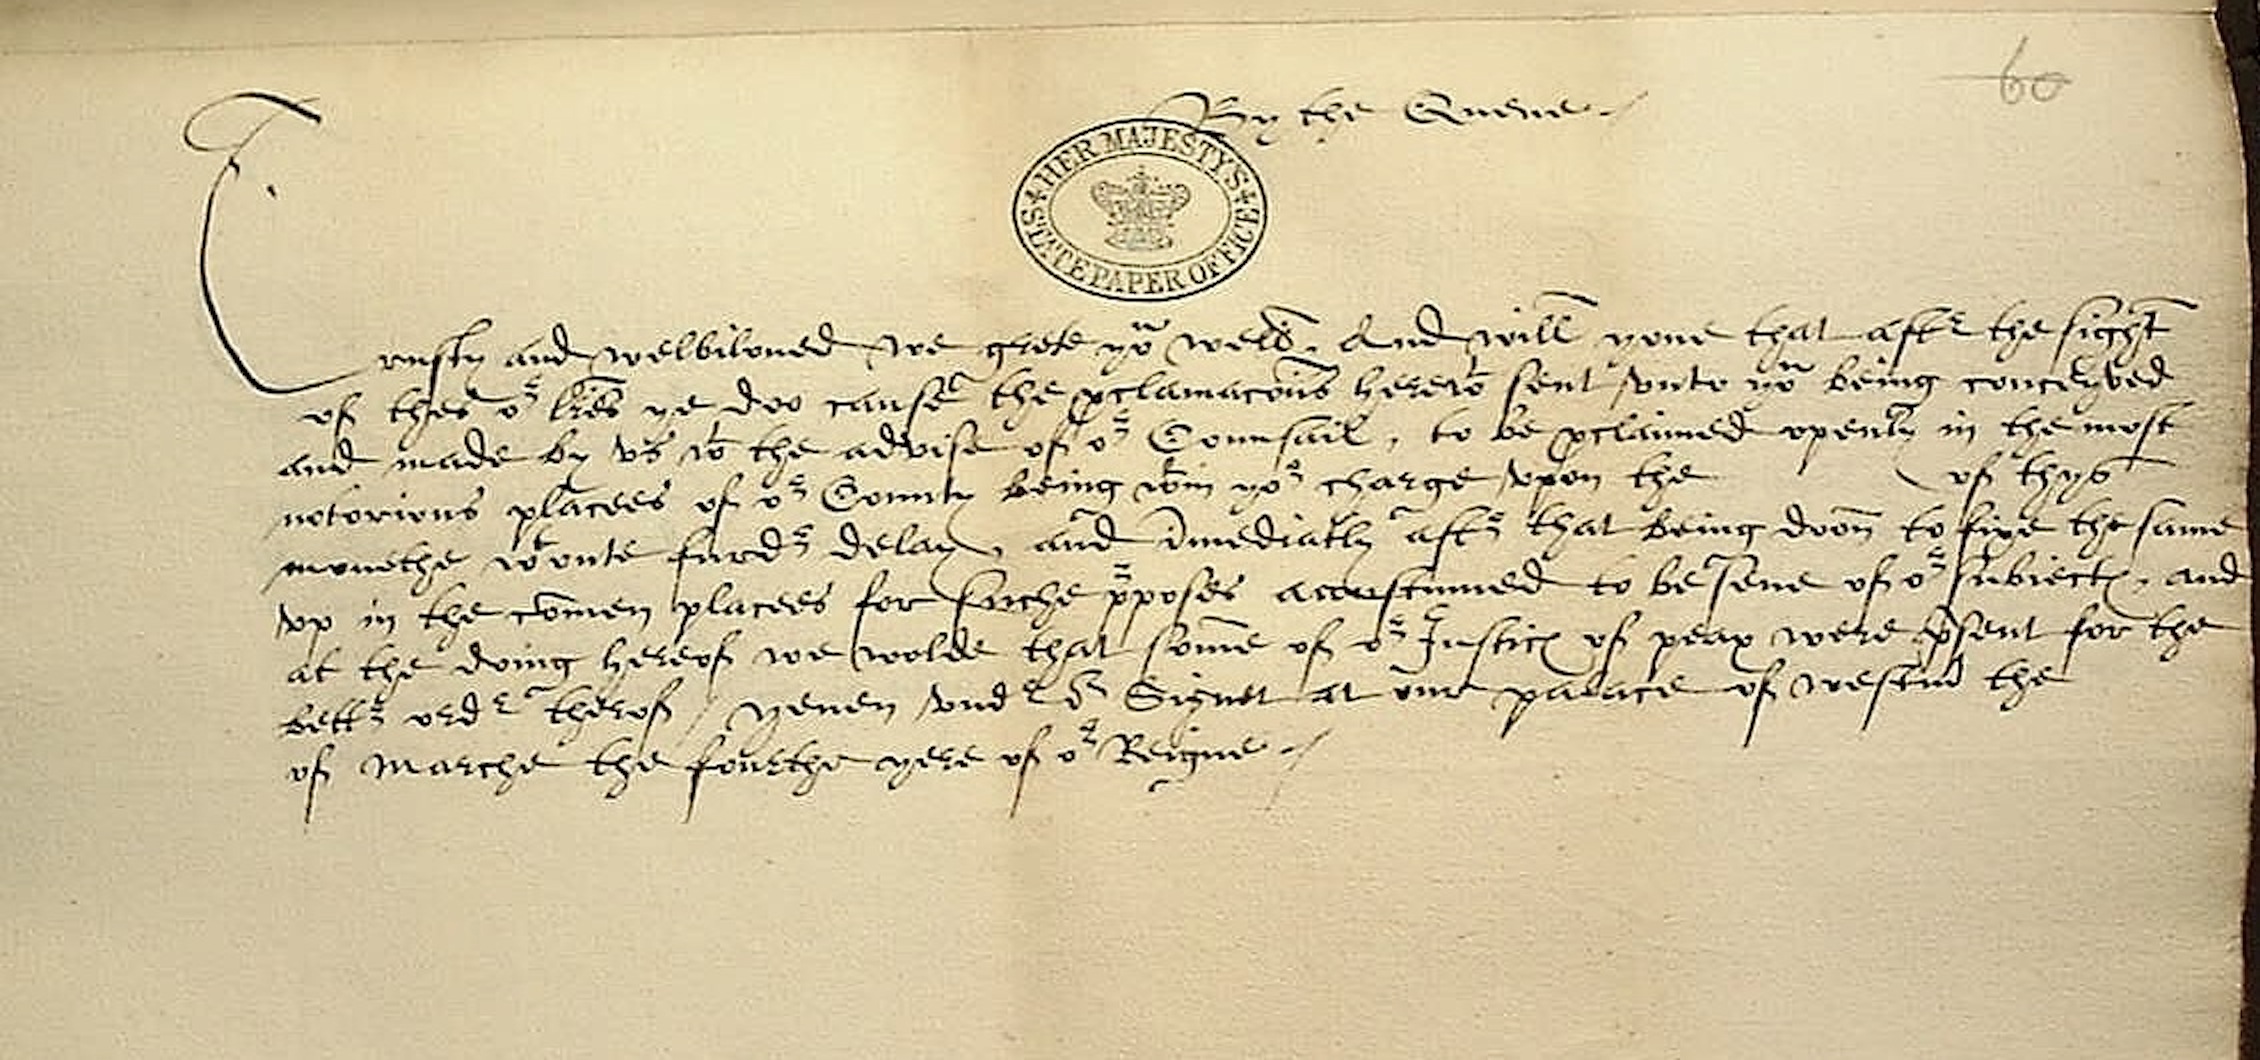 60
By the Quene
HER MAJESTY'S
STATE PAPER OFFICE
Trusty and welbiloued we grete yoᵘ well. And will youe that aftʳ the sight
of thes oʳ lr̃es ye doo cause the pclamacõns herewᵗ sent vnto yoᵘ being conceyved
and made by vs wᵗ the advise of oʳ Counsail, to be pclaimed openly in the most
notorious placees of oʳ County being wᵗin yoʳ charge vpon the of thys
monethe wᵗoute furdʳ delay, and ĩmediatly aftʳ that being doon to fixe the same
vp in the cõmen placees for suche pposes accustumed to be sene of oʳ subiectꝭ, and
at the doing hereof we wolde that some of oʳ Justicꝭ of peax were psent for the
bettʳ ordʳ therof / yeuen vndʳ oʳ Signet at our palace of westm̃ the
of Marche the fourthe yere of oʳ Reigne